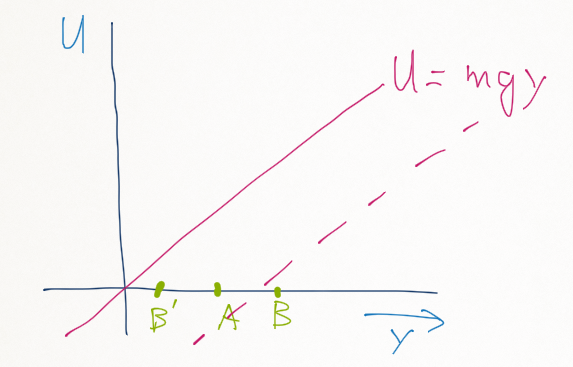 U
U = mgy
B' A B
y